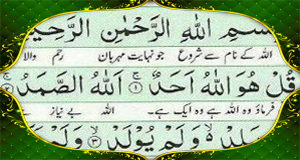 بِسْمِ اللّٰهِ الرَّحْمٰنِ الرَّحِيْمِ
اللہ کے نام سے شروع جو نہایت مہربان رحم والا
قُلْ هُوَ اللّٰهُ اَحَدٌ ۝١ اَللّٰهُ الصَّمَدُ ۝٢
فرماؤ وہ اللہ ہے وہ ایک ہے۔ اللہ بے نیاز
يَلِدْ ۙ وَلَمْ يُوْلَدْ ۝٣ وَلَمْ